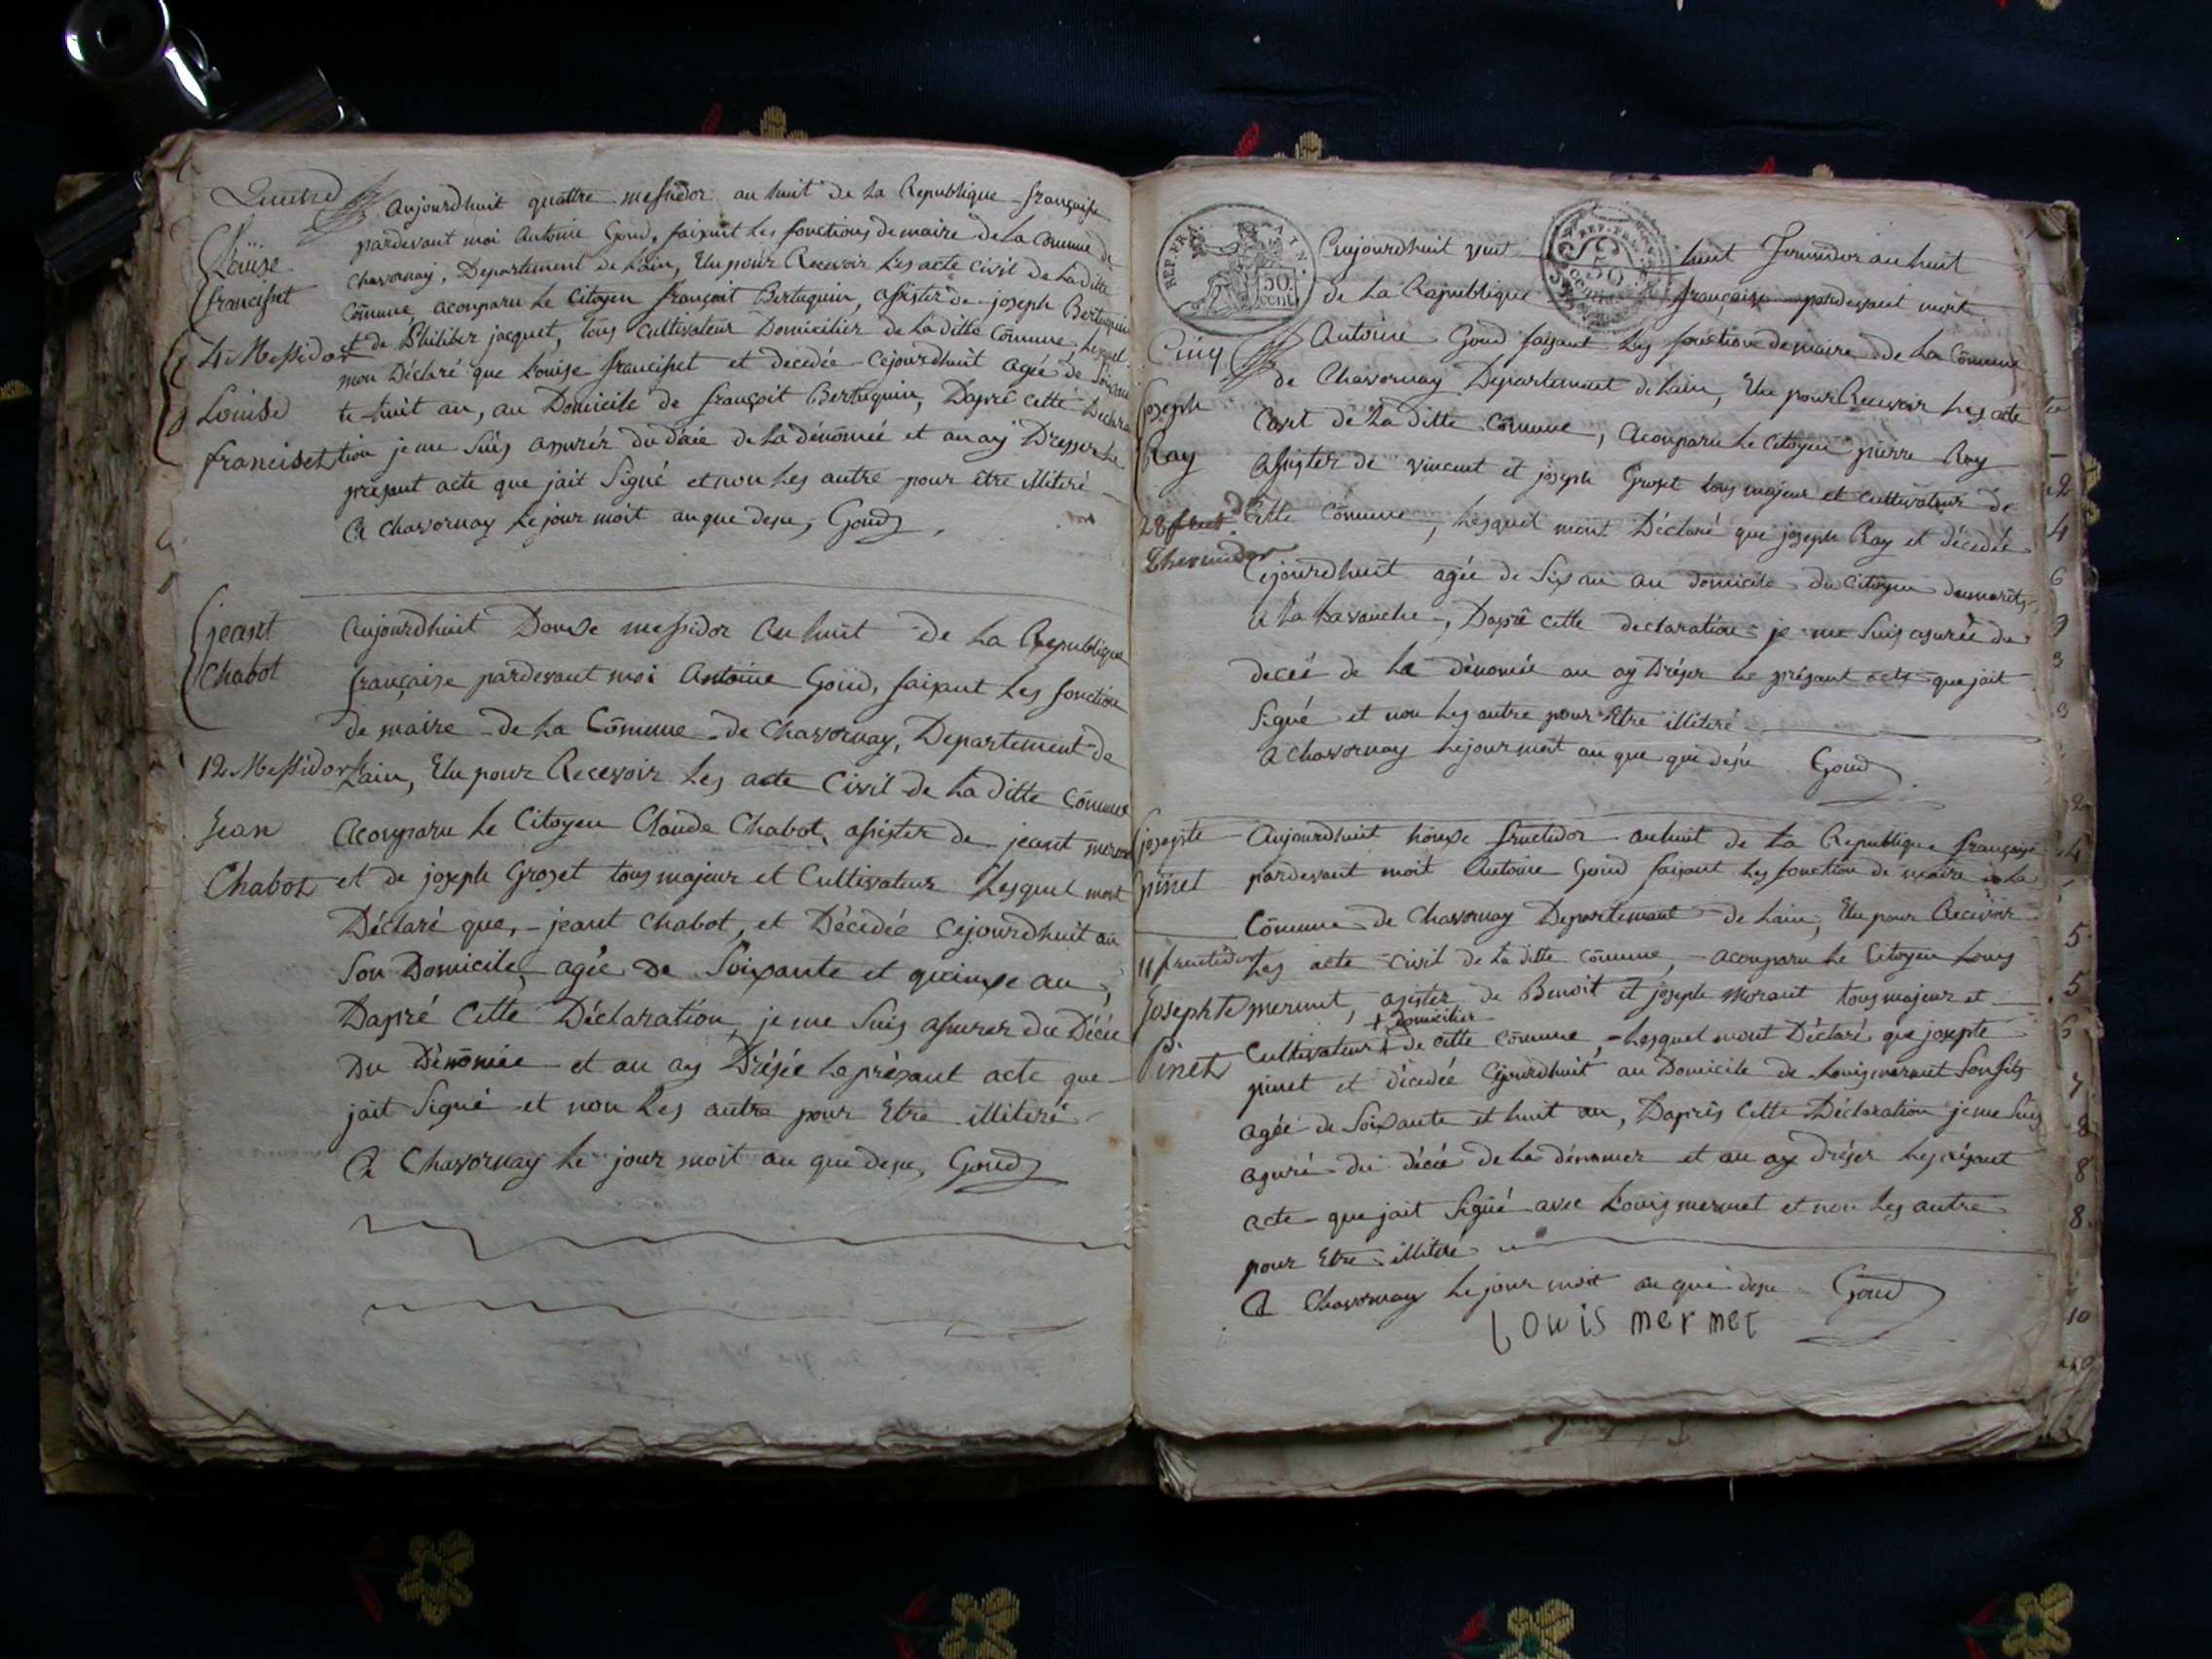 Louise
francisset
4 Messidor
Louise
franciset
Aujourdhuit quattre messidor an huit de La Republique française
pardevant moi Antoine Goud, faisant Les fonctions de maire de La Comune de
Chavornay, Departement de Lain, Elu pour Recevoir Les acte Civil de La ditte
Cômune, acomparu Le Citoyen françoit Bertuquin, assister de joseph Bertuquin
et de Philiber jacquet, tous Cultivateur Domicilier de La ditte Cômune Lesquel
mon Déclaré que Louise francisset et decedée Cejourdhuit agée de Soixan
te huit an, au Domicile de françoit Bertuquin, Dapré cette Declara
tion je me Suis assurér du déie de La dénômée et an ay Dresser Le
présant acte que jait Signé et non Les autre pour être illiteré
A Chavornay Le jour moit an que desu, Goud
jeant
Chabot
12 Messidor
Jean
Chabot
Aujourdhuit Douse messidor an huit de La Republique
française pardevant moi Antoine Goud, faisant Les fonction
de maire de La Cômune de Chavornay, Departement de
Lain, Elu pour Recevoir Les acte Civil de La ditte Cômune
Acomparu Le Citoyen Claude Chabot, assister de jeant mermet
et de joseph Groset tous majeur et Cultivateur Lesquel mont
Déclaré que, jeant Chabot, et Décedée Cejourdhuit au
Son Domicile, agée de Soixante et quinse an,
Dapré Cette Déclaration je me Suis assurer du Décée
Du Dénômée et an ay Drésée Le présant acte que
jait Signé et non Les autre pour Etre illiteré
A Chavornay Le jour moit an que desu, Goud
REP. FRA.
50.
cent
REP. FRA.
50
Centimes
Aujourdhuit vint huit Termidor an huit
de La Republique française pardevant moit
Cinq
joseph
Ray
28
Thermidor
Antoine Goud faisant Les fonction de maire de La Cômune
de Chavornay Departement de Lain, Elu pour Recevoir Les acte
Civil de La ditte Cômune, Acomparu Le Citoyen pierre Ray
Assister de vincent et joseph Groset tous majeur et Cultivateur de
Cette Cômune, Lesquel mont Déclaré que joseph Ray et décedée
Cejourdhuit agée de Six an au domicile du Citoyen
a La Lavanche, Dapré cette declaration je me Suis asurée du
deceé de La dénomée an ay Dréser Le présant acte que jait
Signé et non Les autre pour Etre illiteré
A Chavornay Le jour moit an que qui desu Goud
josepte
pinet
11 fructidor
Josephte
Pinet
Aujourdhuit honse fructidor an huit de La Republique française
pardevant moit Antoine Goud faisant Les fonction de maire de La
Cômune de Chavornay Departement de Lain, Elu pour Recevoir
Les acte Civil de La ditte Cômune, acomparu Le Citoyen Louis
mermet, asister de Benoit et joseph Morant tous majeur et
+ Domicilier
Cultivateur + de cette Cômune, Lesquel mont Déclaré que josepte
pinet et décedée Cejourdhuit au Domicile de Louis mermet Son fils
agée de Soixante et huit an, Daprês Cette Déclaration je me Suis
asuré du décée de La dénomer et an ay dréser Le présant
acte que jait Signé avec Louis mermet et non Les autre
pour Etre illiteré
A Chavornay Le jour moit an que desu Goud
Louis mermet